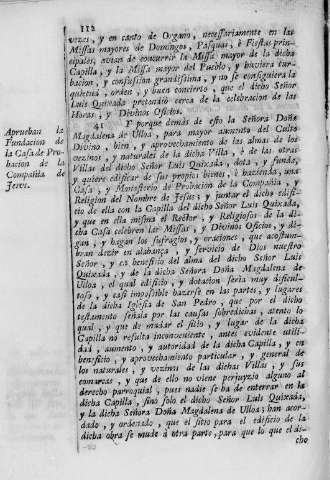 112
vozes, y en canto de Organo, necessariamente en las
Missas mayores de Domingos, Pasquas, è Fiestas prin-
cipales, avian de concurrir la Missa mayor de la dicha
Capilla, y la Missa mayor del Pueblo, y huviera tur-
bacion, y confussion grandissima, y no se consiguiera la
quietud, orden, y buen concierto, que el dicho Señor
Luis Quixada pretendiò cerca de la celebracion de las
Horas, y Divinos Oficios.
41 Y porque demàs de esto la Señora Doña
Magdalena de Ulloa, para mayor aumento del Culto
Divino, bien, y aprovechamiento de las almas de los
vezinos, y naturales de la dicha Villa, y de las otras
Villas del dicho Señor Luis Quixada, dota, y funda,
y quiere edificar de sus propios bienes, è hazienda, una
Casa, y Monasterio de Probacion de la Compañia, y
Religion del Nombre de Jesus; y juntar el dicho edifi-
cio de ella con la Capilla del dicho Señor Luis Quixada,
y que en ella mesma el Rector, y Religiosos de la di-
cha Casa celebren las Missas, y Divinos Oficios, y di-
gan, y hagan los sufragios, y oraciones, que acostum-
bran dezir en alabança, y servicio de Dios nuestro
Señor, y en beneficio del alma del dicho Señor Luis
Quixada, y de la dicha Señora Doña Magdalena de
Ulloa, el qual edificio, y dotacion seria muy dificul-
toso, y casi impossible hazerse en las partes, y lugares
de la dicha Iglesia de San Pedro, que por el dicho
testamento señala por las causas sobredichas, atento lo
qual, y que de mudar el sitio, y lugar de la dicha
Capilla no resulta inconveniente, antes evidente utili-
dad, aumento, y autoridad de la dicha Capilla, y en
beneficio, y aprovechamiento particular, y general de
los naturales, y vezinos de las dichas Villas, y sus
comarcas, y que de ello no viene perjuyzio alguno al
derecho parroquial, pues nadie se ha de enterrar en la
dicha Capilla, sino solo el dicho Señor Luis Quixada,
y la dicha Señora Doña Magdalena de Ulloa; han acor-
dado, y ordenado, que el sitio para el edificio de la
dicha obra se mude à otra parte, para que lo que el di-
cho
Aprueban la
Fundacion de
la Casa de Pro-
bacion de la
Compañia de
Jesus.